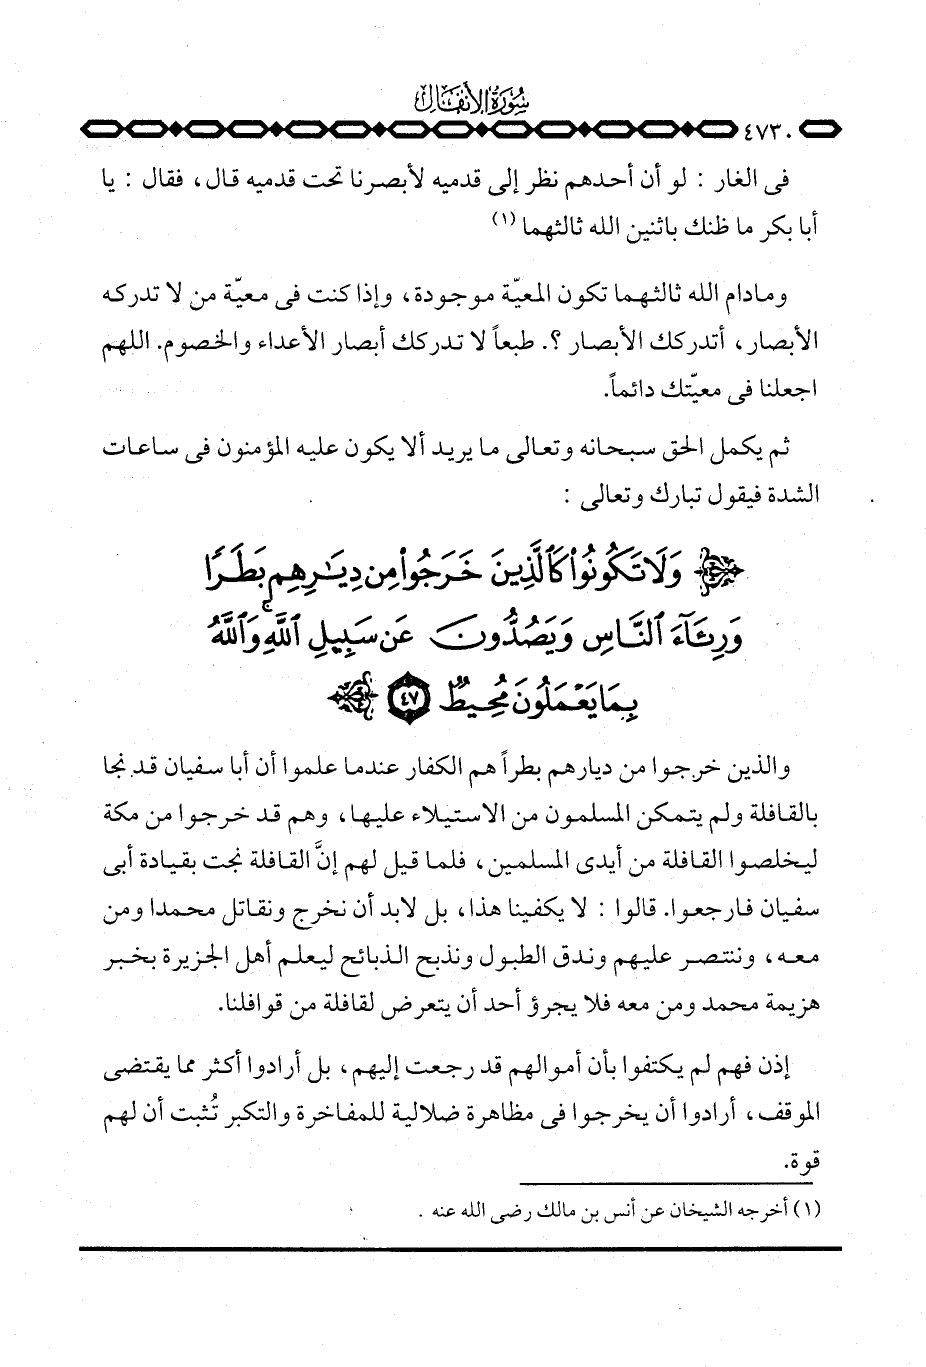 سورة الأنفال
٤٧٣٠
فى الغار : لو أن أحدهم نظر إلى قدميه لأبصرنا تحت قدميه قال، فقال : يا
أبا بكر ما ظنك باثنين الله ثالثهما (١)
ومادام الله ثالثهما تكون المعيّة موجودة، وإذا كنت فى معيّة من لا تدركه
الأبصار، أتدركك الأبصار ؟. طبعاً لا تدركك أبصار الأعداء والخصوم. اللهم
اجعلنا فى معيّتك دائماً.
ثم يكمل الحق سبحانه وتعالى ما يريد ألا يكون عليه المؤمنون فى ساعات
الشدة فيقول تبارك وتعالى :
وَلَا تَكُونُوا۟ كَٱلَّذِينَ خَرَجُوا۟ مِن دِيَـٰرِهِم بَطَرًا
وَرِئَآءَ ٱلنَّاسِ وَيَصُدُّونَ عَن سَبِيلِ ٱللَّهِ ۚ وَٱللَّهُ
بِمَا يَعْمَلُونَ مُحِيطٌ ٤٧
والذين خرجوا من ديارهم بطراً هم الكفار عندما علموا أن أبا سفيان قد نجا
بالقافلة ولم يتمكن المسلمون من الاستيلاء عليها، وهم قد خرجوا من مكة
ليخلصوا القافلة من أيدى المسلمين، فلما قيل لهم إنَّ القافلة نجت بقيادة أبى
سفيان فارجعوا. قالوا : لا يكفينا هذا، بل لابد أن نخرج ونقاتل محمدا ومن
معه، وننتصر عليهم وندق الطبول ونذبح الذبائح ليعلم أهل الجزيرة بخبر
هزيمة محمد ومن معه فلا يجرؤ أحد أن يتعرض لقافلة من قوافلنا.
إذن فهم لم يكتفوا بأن أموالهم قد رجعت إليهم، بل أرادوا أكثر مما يقتضى
الموقف، أرادوا أن يخرجوا فى مظاهرة ضلالية للمفاخرة والتكبر تُثبت أن لهم
قوة.
(١) أخرجه الشيخان عن أنس بن مالك رضى الله عنه .